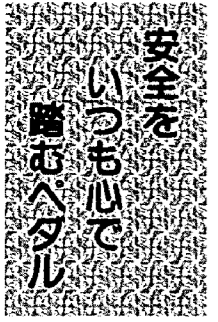 安全を
いつも心で
踏むペダル